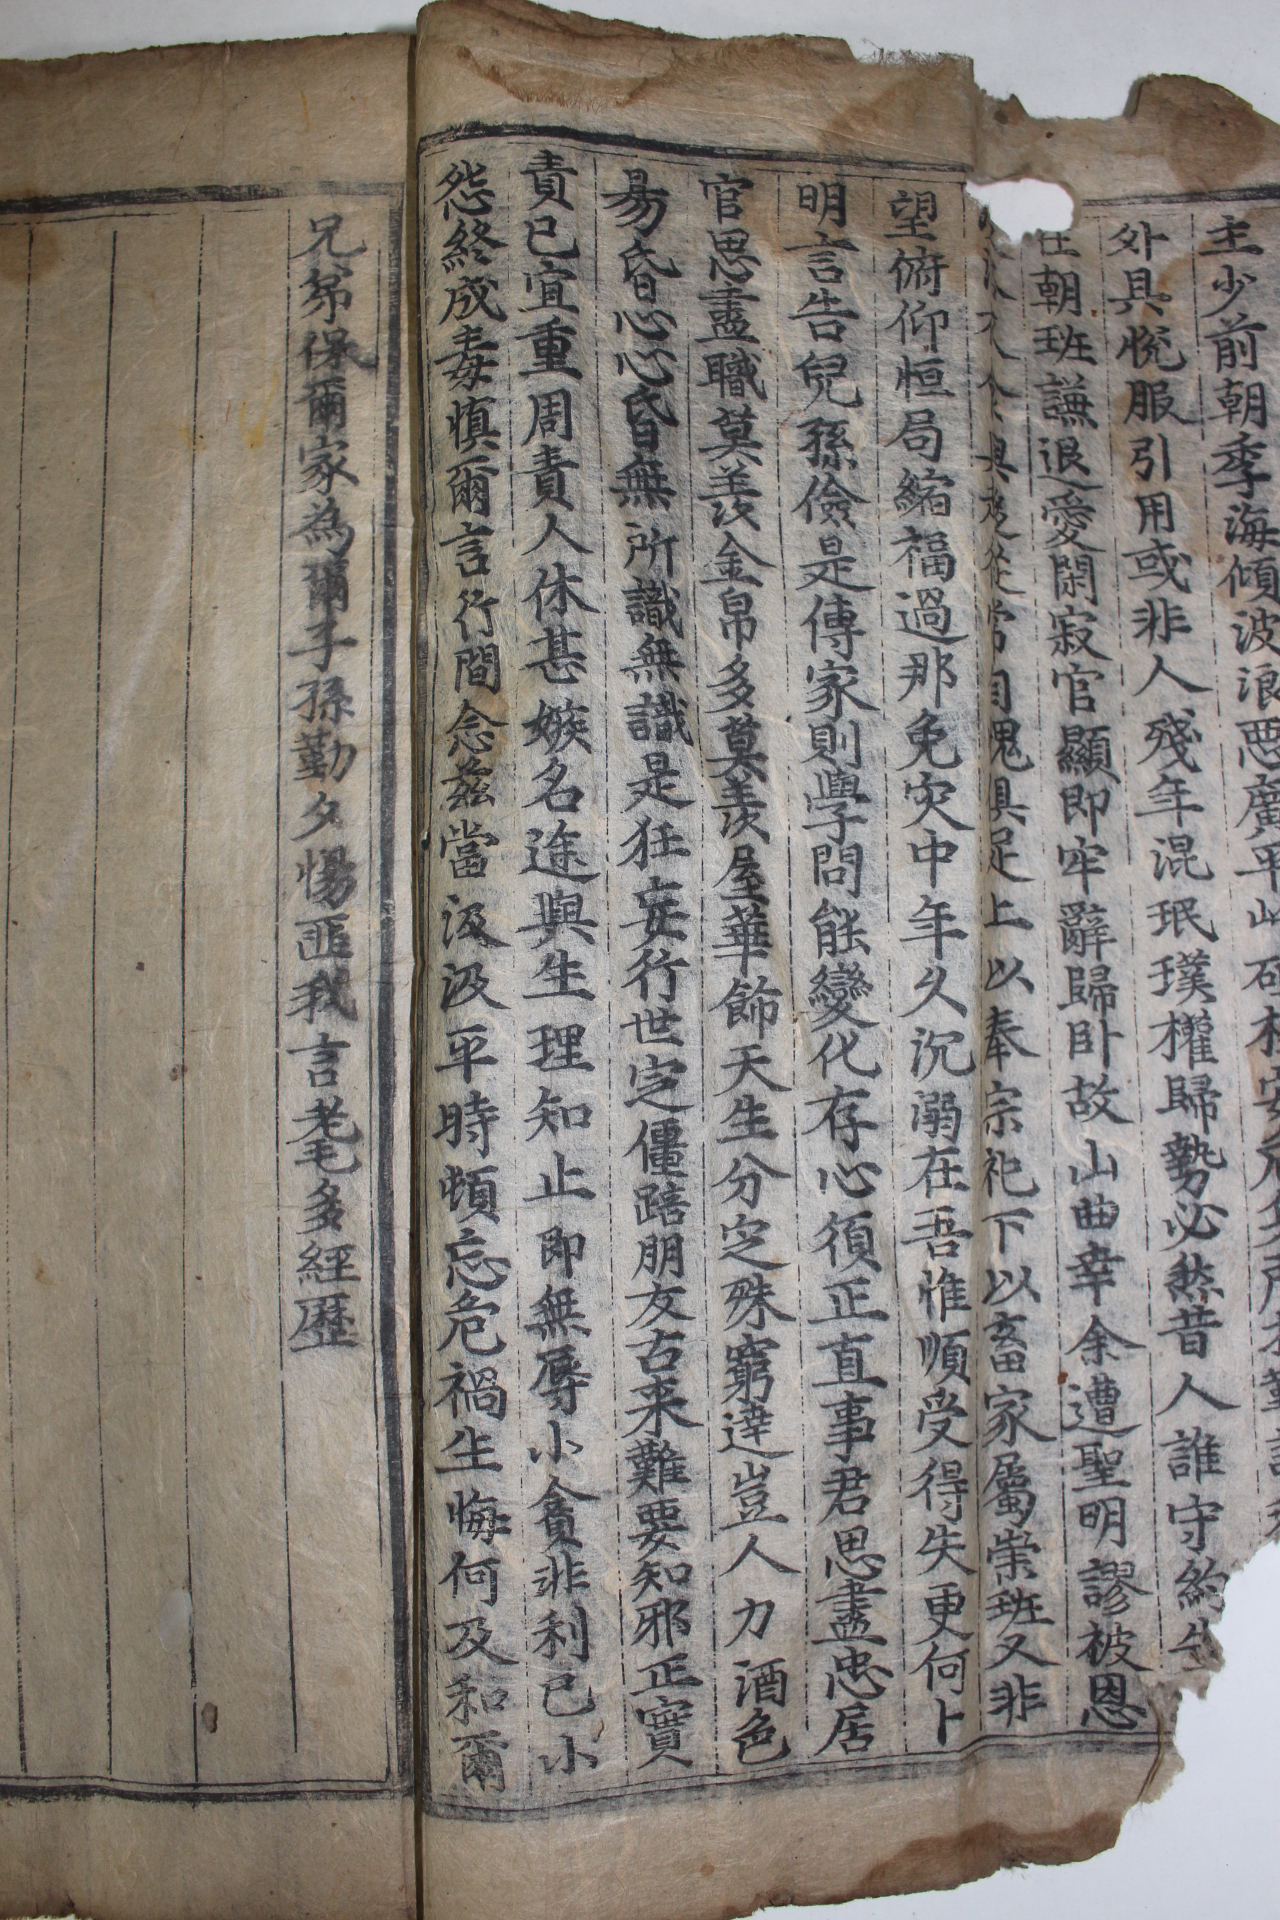 主少前朝季海傾波浪惡廣平
外具悅服引用或非人殘年混珉璞權歸勢必然昔人誰守約
在朝班謙退愛閑寂官顯即牢辭歸卧故山曲幸余遭聖明謬被恩
常自愧具足上以奉宗祀下以畜家屬崇班又非
望俯仰恒局縮福過那免灾中年久沉溺在吾惟順受得失更何卜
明言告兒孫儉是傳家則學問能變化存心須正直事君思盡忠居
官思盡職莫羨金帛多莫羨屋華飾天生分定殊窮達豈人力酒色
易昏心心昏無所識無識是狂妄行世定僵踣朋友古来難要知邪正實
責己宜重周責人休甚嫉名途與生理知止即無辱小貪非利己小
怨終成毒慎爾言行間念茲當汲汲平時頓忘危禍生悔何及和爾
兄弟保爾家為爾子孫勤夕惕匪我言老毛多經歷